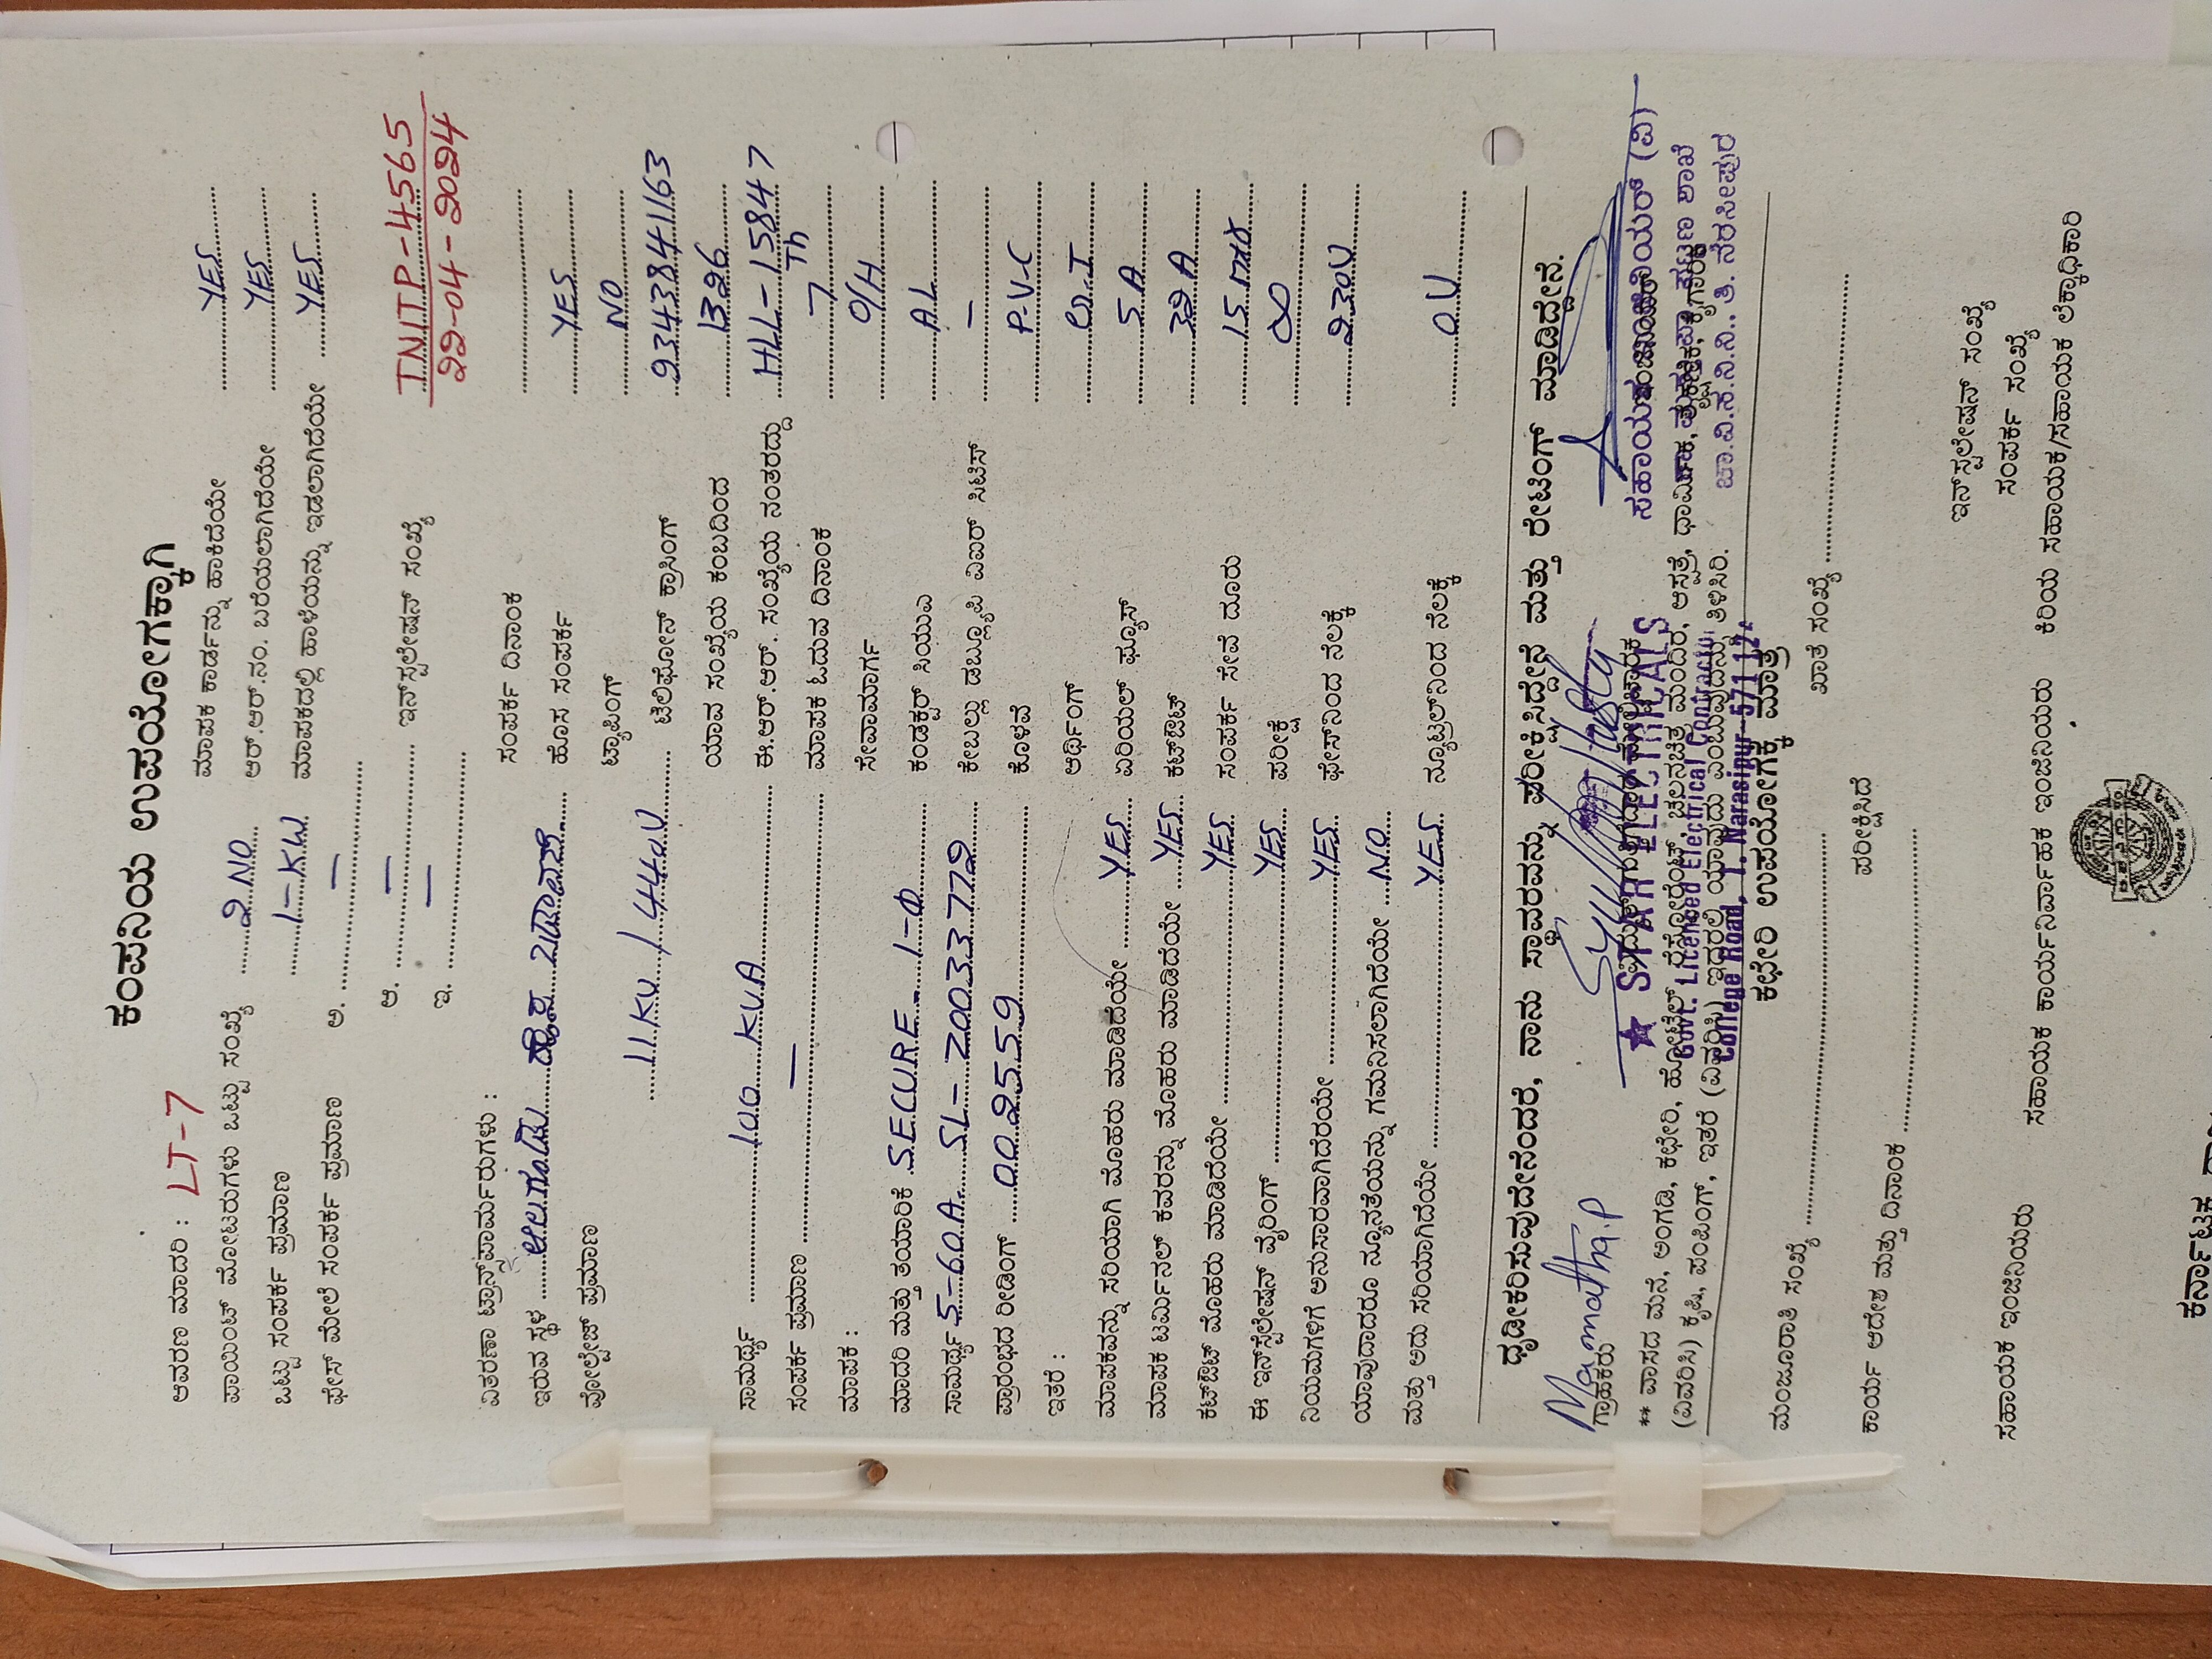 ಕಂಪನಿಯ ಉಪಯೋಗಕ್ಕಾಗಿ
ಆವರಣ ಮಾದರಿ : LT-7 ಮಾಪಕ ಕಾರ್ಡನ್ನು ಹಾಕಿದೆಯೇ YES
ಪಾಯಿಂಟ್ ಮೋಟರುಗಳು ಒಟ್ಟು ಸಂಖ್ಯೆ 2 NO ಆರ್.ಆರ್.ನಂ. ಬರೆಯಲಾಗಿದೆಯೇ YES
ಒಟ್ಟು ಸಂಪರ್ಕ ಪ್ರಮಾಣ 1-KW ಮಾಪಕದಲ್ಲಿ ಹಾಳೆಯನ್ನು ಇಡಲಾಗಿದೆಯೇ YES
ಫೇಸ್ ಮೇಲೆ ಸಂಪರ್ಕ ಪ್ರಮಾಣ ಅ. —
ಆ. — ಇನ್‌ಸ್ಟಲೇಷನ್ ಸಂಖ್ಯೆ TNITP-4565
ಇ. — 22-04-2024
ವಿತರಣಾ ಟ್ರಾನ್ಸ್‌ಫಾರ್ಮರುಗಳು : ಸಂಪರ್ಕ ದಿನಾಂಕ
ಇರುವ ಸ್ಥಳ ಆಲಗೂಡು ಹೊಸ ಸಂಪರ್ಕ YES
ವೋಲ್ಟೇಜ್ ಪ್ರಮಾಣ ಟ್ಯಾಪಿಂಗ್ NO
11KV / 440V ಟೆಲಿಫೋನ್ ಕ್ರಾಸಿಂಗ್ 2343841163
ಯಾವ ಸಂಖ್ಯೆಯ ಕಂಬದಿಂದ 1326
ಸಾಮರ್ಥ್ಯ 100 KVA ಈ.ಆರ್.ಆರ್. ಸಂಖ್ಯೆಯ ನಂತರದ್ದು HLL-15847
ಸಂಪರ್ಕ ಪ್ರಮಾಣ — ಮಾಪಕ ಓದುವ ದಿನಾಂಕ 7 Th
ಮಾಪಕ : ಸೇವಾಮಾರ್ಗ O/H
ಮಾದರಿ ಮತ್ತು ತಯಾರಿಕೆ SECURE 1-Φ ಕಂಡಕ್ಟರ್ ಸಿಯುಎ AL
ಸಾಮರ್ಥ್ಯ 5-60A. SL-20033772 ಕೇಬಲ್ಲು ಡಬ್ಲ್ಯೂಪಿ ಎಐರ್ ಸಿಟಿಸ್ —
ಪ್ರಾರಂಭದ ರೀಡಿಂಗ್ 0025559 ಕೊಳವೆ P.V.C
ಇತರೆ : ಆರ್ಥಿಂಗ್
ಮಾಪಕವನ್ನು ಸರಿಯಾಗಿ ಮೊಹರು ಮಾಡಿದೆಯೇ YES ಏರಿಯಲ್ ಫ್ಯೂಸ್ 5 A
ಮಾಪಕ ಟರ್ಮಿನಲ್ ಕವರನ್ನು ಮೊಹರು ಮಾಡಿದೆಯೇ YES ಕಟೌಟ್ 32 A
ಕಟ್‌ಔಟ್ ಮೊಹರು ಮಾಡಿದೆಯೇ YES ಸಂಪರ್ಕ ಸೇವೆ ದೂರು 15 mtr
ಈ ಇನ್‌ಸ್ಟಲೇಷನ್ ವೈರಿಂಗ್ YES ಪರೀಕ್ಷೆ ∞
ನಿಯಮಗಳಿಗೆ ಅನುಸಾರವಾಗಿದೆರಯೇ YES ಫೇಸ್‌ನಿಂದ ನೆಲಕ್ಕೆ 230V
ಯಾವುದಾದರೂ ನ್ಯೂನತೆಯನ್ನು ಗಮನಿಸಲಾಗಿದೆಯೇ NO
ಮತ್ತು ಅದು ಸರಿಯಾಗಿದೆಯೇ YES ನ್ಯೂಟ್ರಲ್‌ನಿಂದ ನೆಲಕ್ಕೆ 0 V
ಧೃಡೀಕರಿಸುವುದೇನೆಂದರೆ, ನಾನು ಸ್ಥಾವರವನ್ನು ಪರೀಕ್ಷಿಸಿದ್ದೇನೆ ಮತ್ತು ರೇಟಿಂಗ್ ಮಾಡಿದ್ದೇನೆ.
Mamatha.P
ಗ್ರಾಹಕರು
★ STAR ELECTRICALS
Govt. Licenced Electrical Contractor
College Road, T. Narasipur-571 124
ಸಹಾಯಕ ಇಂಜಿನಿಯರ್ (ವಿ)
ಚಾ.ವಿ.ಸ.ನಿ.ನಿ., ತಿ. ನರಸೀಪುರ
** ವಾಸದ ಮನೆ, ಅಂಗಡಿ, ಕಛೇರಿ, ಹೋಟೆಲ್, ರೆಸ್ಟೋರೆಂಟ್, ಚಲನಚಿತ್ರ ಮಂದಿರ, ಆಸ್ಪತ್ರೆ, ಧಾರ್ಮಿಕ, ಶೈಕ್ಷಣಿಕ, ಕೈಗಾರಿಕೆ
(ವಿವರಿಸಿ) ಕೃಷಿ, ಪಂಪಿಂಗ್, ಇತರೆ (ವಿವರಿಸಿ) ಇದರಲ್ಲಿ ಯಾವುದು ಎಂಬುವುದನ್ನು ತಿಳಿಸಿರಿ.
ಕಛೇರಿ ಉಪಯೋಗಕ್ಕೆ ಮಾತ್ರ
ಮಂಜೂರಾತಿ ಸಂಖ್ಯೆ ಖಾತೆ ಸಂಖ್ಯೆ
ಕಾರ್ಯ ಆದೇಶ ಮತ್ತು ದಿನಾಂಕ ಪರೀಕ್ಷಿಸಿದೆ
ಇನ್‌ಸ್ಟಲೇಷನ್ ಸಂಖ್ಯೆ
ಸಂಪರ್ಕ ಸಂಖ್ಯೆ
ಸಹಾಯಕ ಇಂಜಿನಿಯರು ಸಹಾಯಕ ಕಾರ್ಯನಿರ್ವಾಹಕ ಇಂಜಿನಿಯರು ಕಿರಿಯ ಸಹಾಯಕ/ಸಹಾಯಕ ಲೆಕ್ಕಾಧಿಕಾರಿ